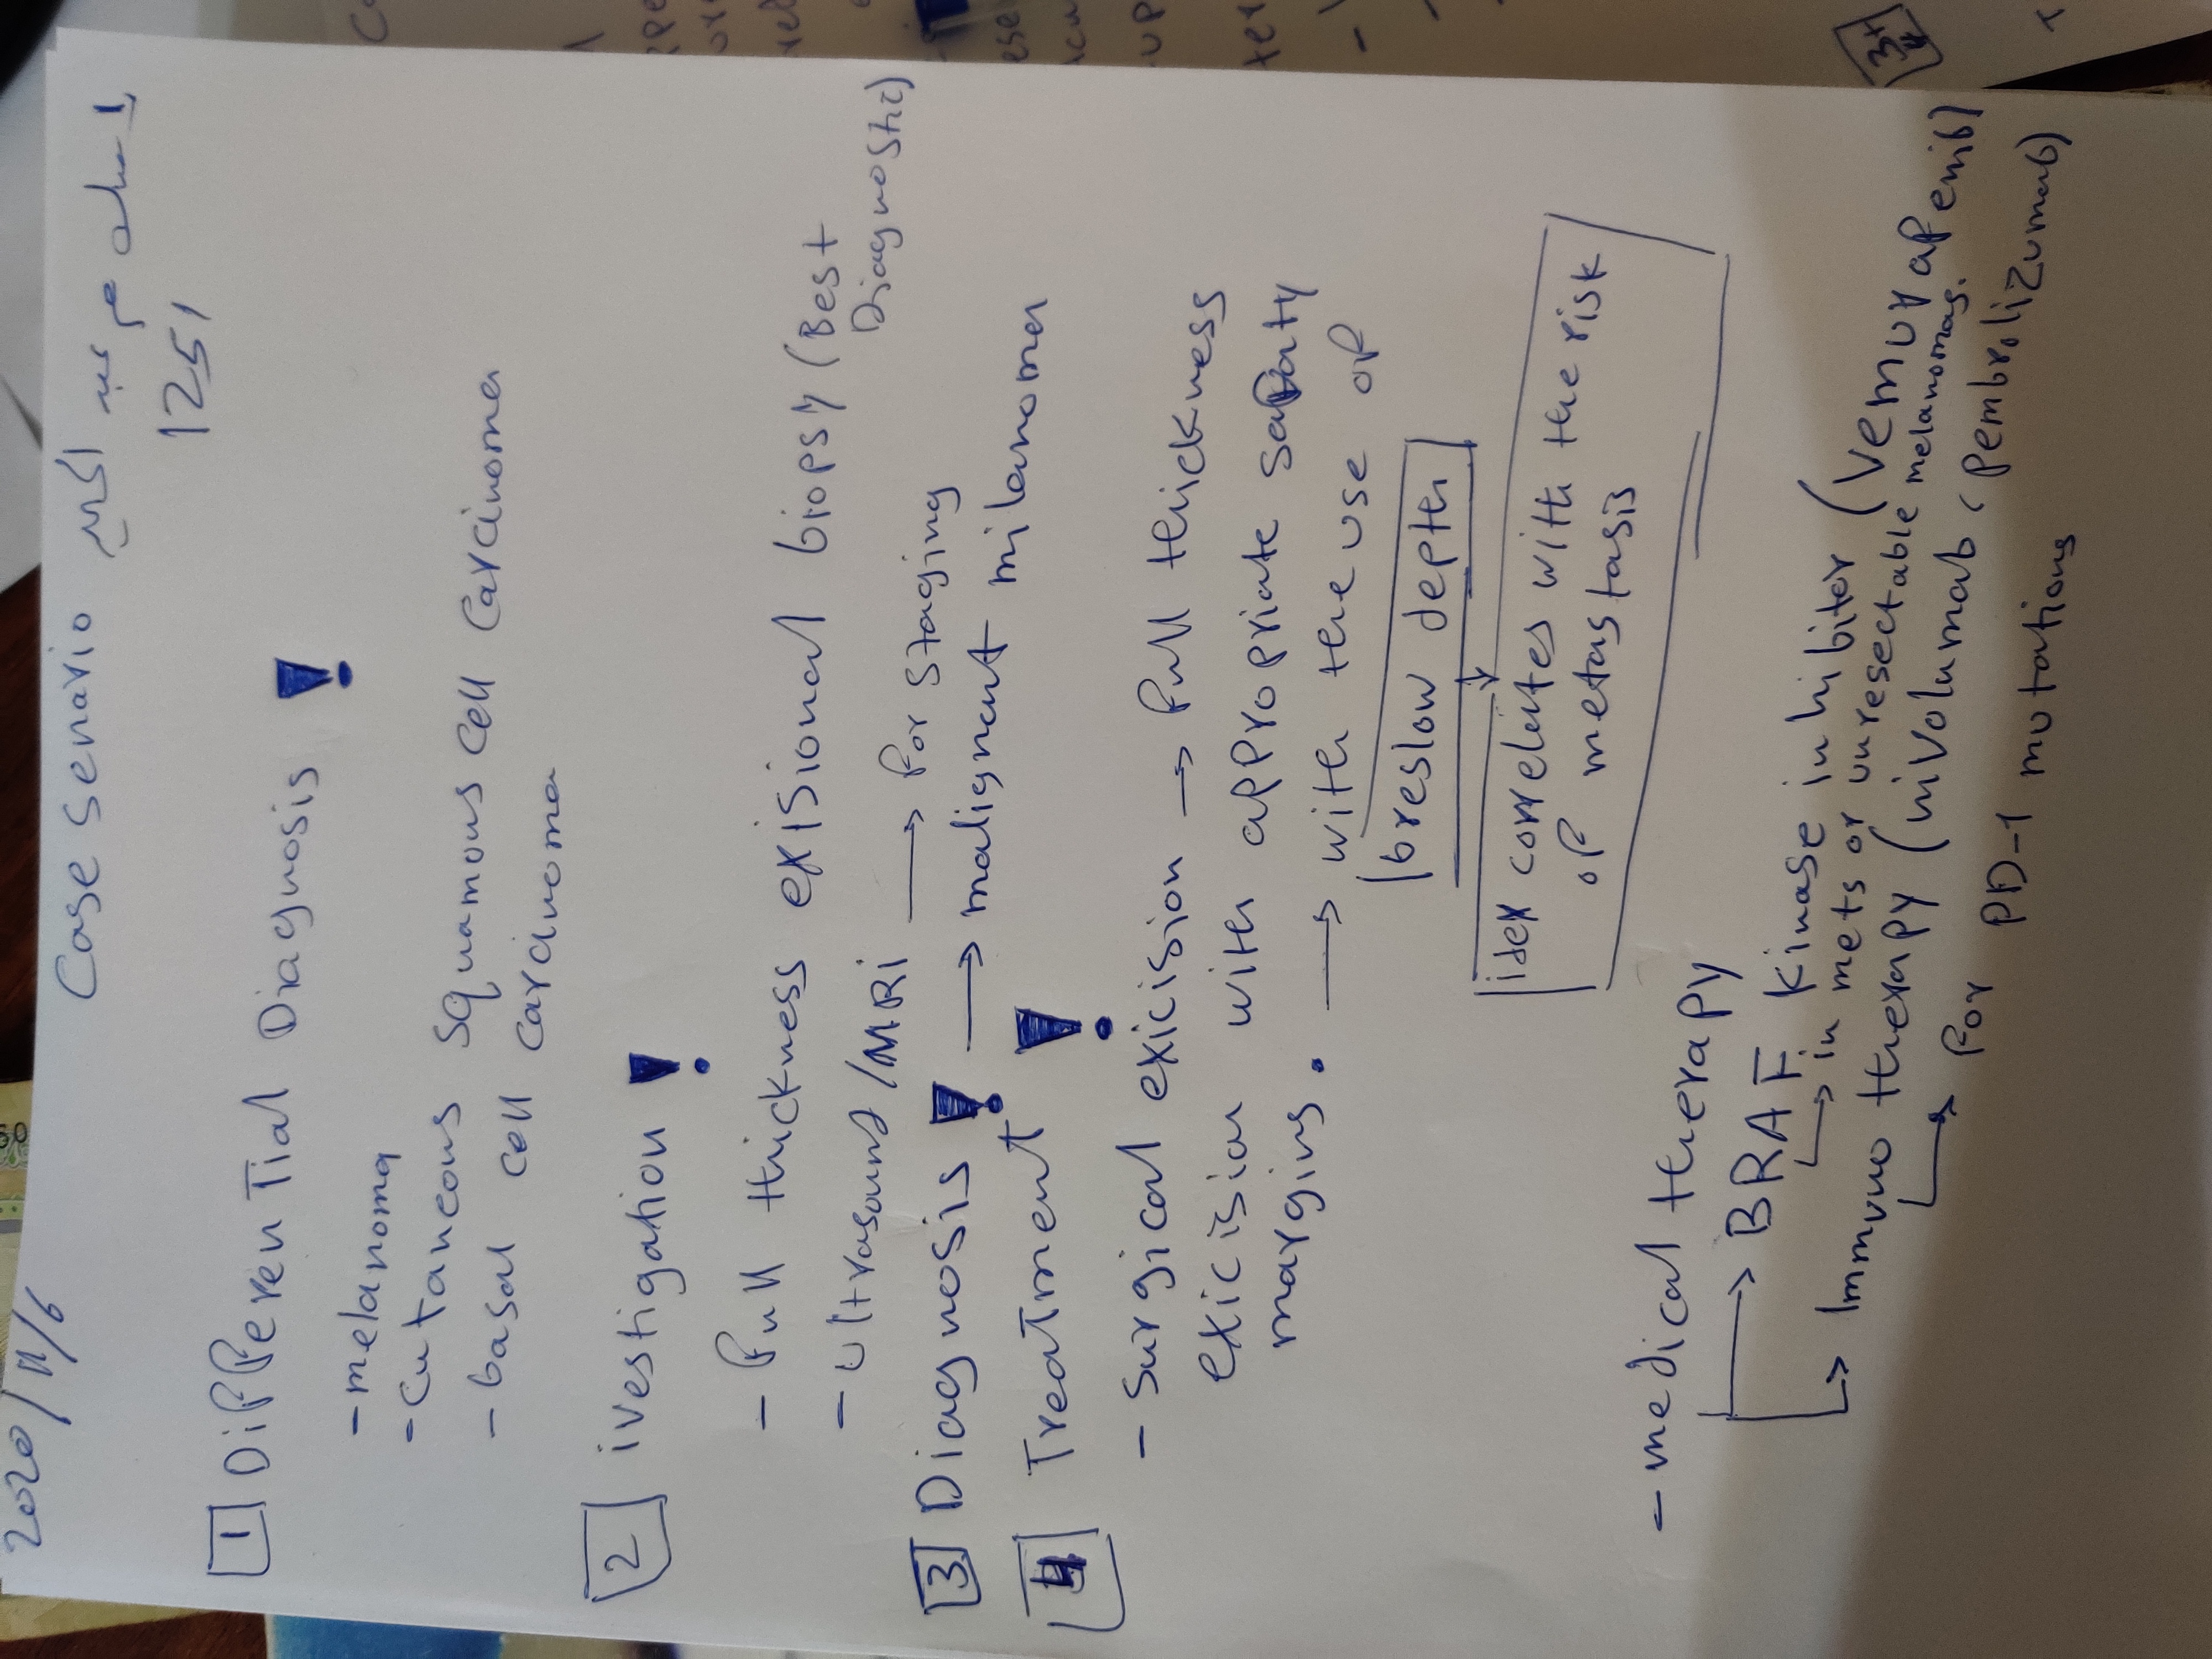 2020/11/6
Case senario
1251
1 Differential Diagnosis !
- melanoma
- cutaneous squamous cell carcinoma
- basal cell carcinoma
2 ivestigation !
- full thickness exisional biopsy (Best
Diagnostic)
- ultrasound /MRi → for staging
3 Diagnosis ! → malignant milanoma
4 Treatment !
- surgical exicision → full thickness
exicision with appropriate safty
margins. → with the use of
breslow depth
idex correlates with the risk
of metastasis
- medical therapy
→ BRAF kinase inhibitor (Vemurafenib)
→ in mets or unresectable melanomas.
→ Immuno therapy (nivolumab, Pembrolizumab)
→ for PD-1 mutations